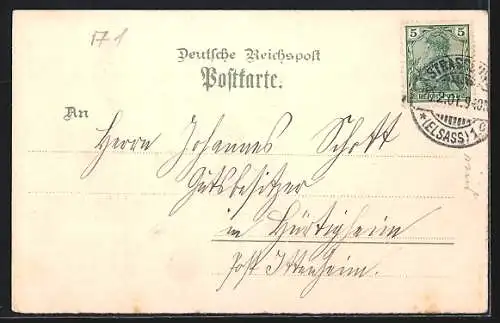 171
Deutsche Reichspost
Postkarte.
5 5
STRASSBURG
2.01.9-10
* (ELSASS) 1
An
Herrn Johannes Schott
Gutsbesitzer
in Hürtigheim
Post Ittenheim.